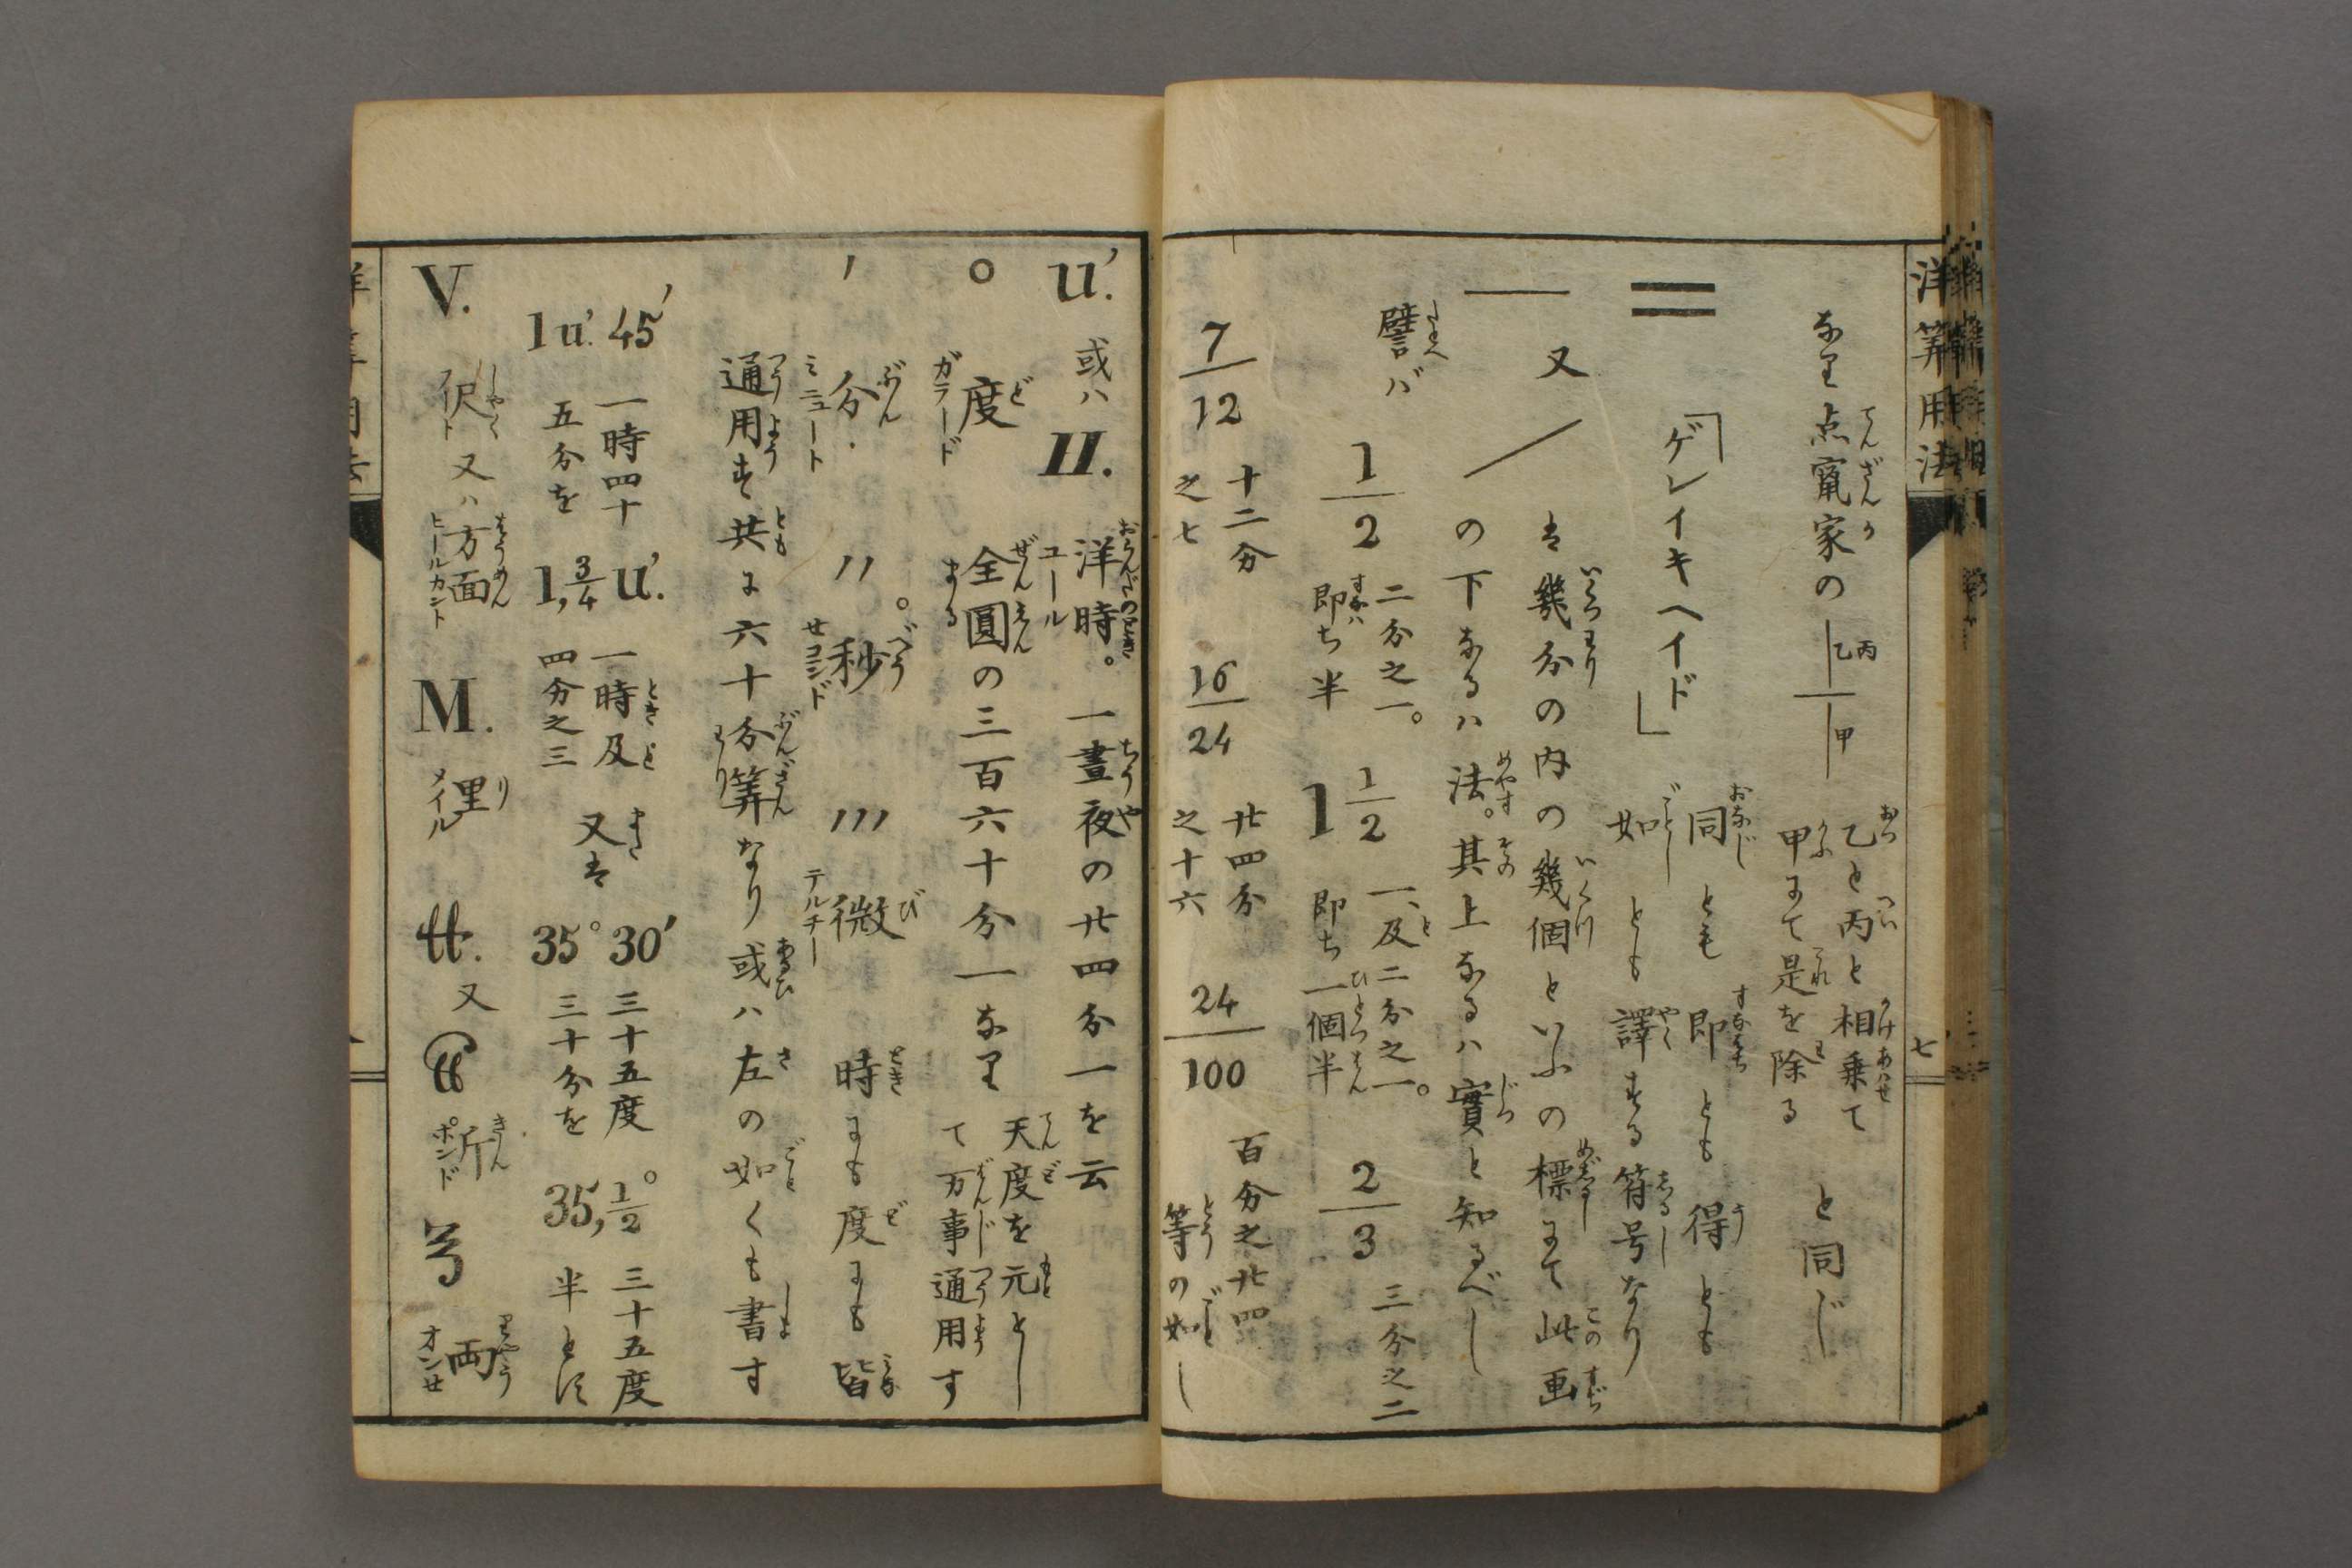 洋算用法
七
なり点竄家の 乙丙 甲 乙と丙と相乗て
甲にて是を除る と同じ
= 「ゲレイキヘイド」 同とも即とも得とも
如とも譯する符号なり
— 又 / は幾分の内の幾個といふの標にて此画
の下なるハ法。其上なるハ實と知るべし
譬バ 1/2 二分之一。
即ち半
1 1/2 一、及二分之一。
即ち一個半
2/3 三分之二
7/12 十二分
之七
16/24 廿四分
之十六
24/100 百分之廿四
等の如し
u'. 或ハ II. 洋時。一晝夜の廿四分一を云
ユール
° 度 全圓の三百六十分一なり 天度を元とし
て万事通用す
ガラード
′ 分. ″ 秒 ‴ 微 時にも度にも皆
ミニュート セコンド テルチー
通用す共に六十分算なり或ハ左の如くも書す
1u'.45′ 一時四十
五分を
1,3/4 u'. 一時及
四分之三
又は
35°30′ 三十五度
三十分を
35,1/2° 三十五度
半とす
V. 又ハ方面 M. 里 又 斤 両
ヒールカント メイル ポンド オンセ